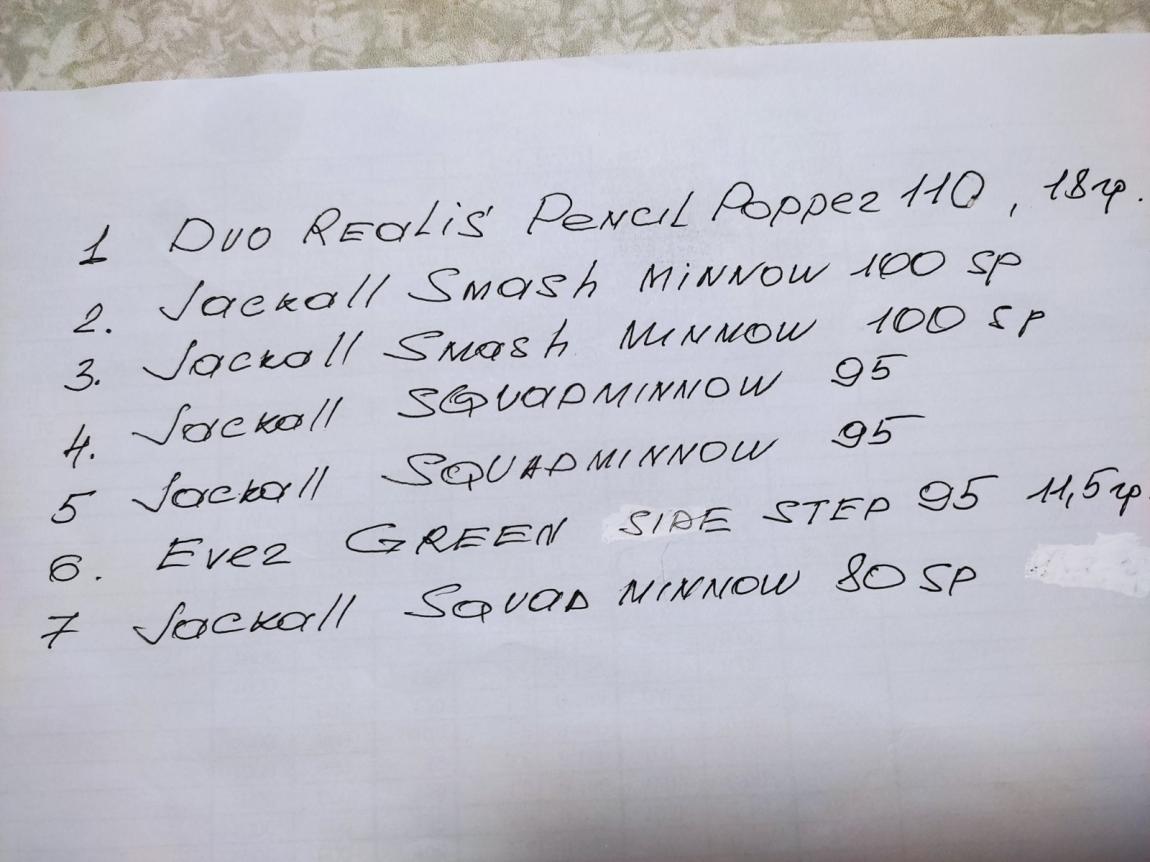 1 Duo Realis Pencil Popper 110, 18гр.
2. Jackall Smash Minnow 100 SP
3. Jackall Smash Minnow 100 SP
4. Jackall SQUADMINNOW 95
5 Jackall SQUADMINNOW 95
6. Ever GREEN SIDE STEP 95 11,5гр.
7 Jackall SQUAD MINNOW 80 SP